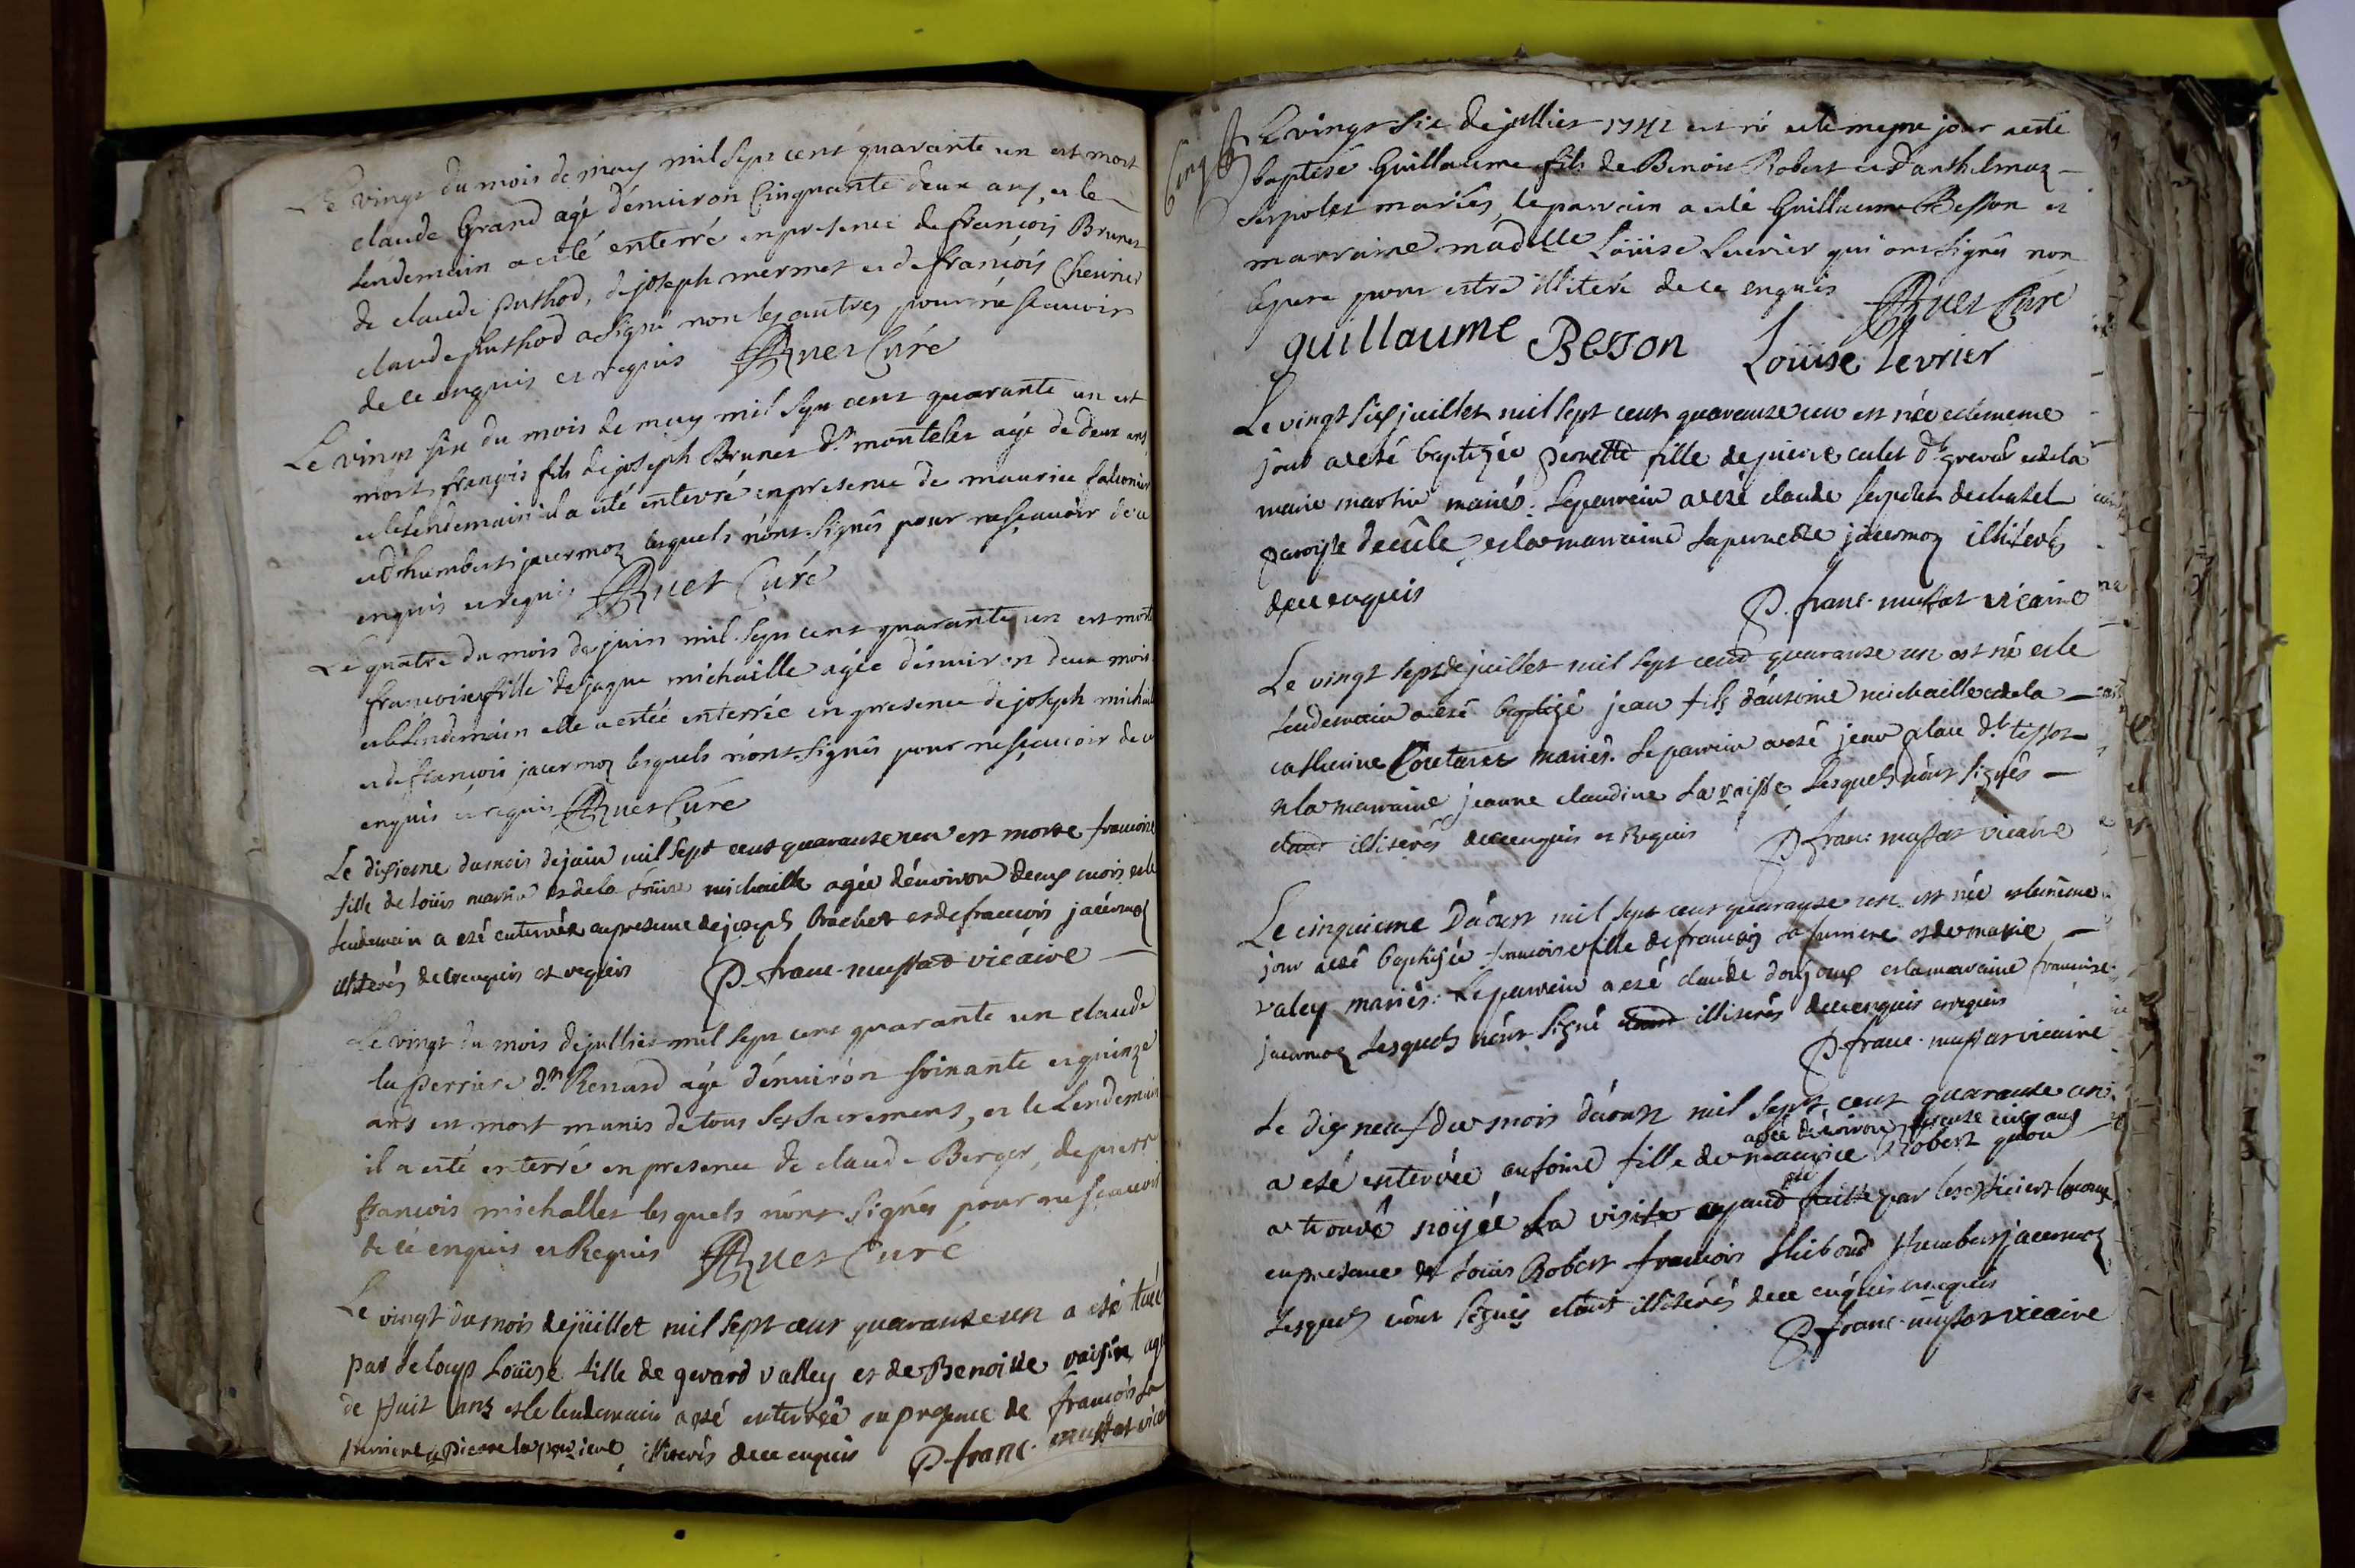 Le vingt du mois de may mil sept cent quarante un est mort
claude Grand agé d'enuiron Cinquante deux ans, et le
lendemain a esté enterré en presence de françois Brunet
de claude puthod, de joseph mermet et de françois
claude puthod a signé non les autres pour ne scauoir
de ce enquis et requis Ruet Curé
Le vingt six du mois de may mil sept cent quarante un est
mort françois fils de joseph Brunet dt montelet agé de deux ans
et le lendemain il a esté enterré en presence de maurice falconnier
et d'humbert jacermoz lesquels n'ont signés pour ne sçauoir de ce
enquis et requis Ruet Curé
Le quatre du mois de juin mil sept cent quarante un est morte
francoise fille de jaque michaille agée d'enuiron deux mois
et le lendemain elle a estée enterrée en presence de joseph michaille
et de francois jacermoz lesquels n'ont signés pour ne sçauoir de ce
enquis et requis Ruet Curé
Le dixieme du mois de juin mil sept cent quarante un est morte francoise
fille de loüis martin et de la loüise michaille agée d'énuiron deux mois et le
lendemain a eté enterrée en presence de joseph brachet et de francois jacermoz
illiterés de ce enquis et requis P. franc. mussat vicaire
Le vingt du mois de jullier mil sept cent quarante un claude
la perriere dt Renard agé d'enuiron soixante et quinze
ans est mort munis de tous ses sacremens, et le Lendemain
il a esté enterré en presence de claude Berger, de pierre
francois michallet lesquels n'ont signés pour ne sçauoir
de ce enquis et Requis Ruet Curé
Le vingt du mois de juillet mil sept cent quarante un a eté tuée
par le loup Loüise fille de gerard valley et de Benoite vaisin agée
de huit ans et le lendemain a eté enterrée en presence de francois la
perriere et pierre la perriere illiterés de ce enquis P. franc. mussat vicaire
Le vingt six de jullier 1741 est né et le mesme jour a esté
baptisé Guillaume fils de Benoit Robert et d'anthelmaz
serpolet mariés, le parrain a esté Guillaume Besson et
marraine madelle Loüise Leurier qui ont signés non
le pere pour estre illiteré de ce enquis Ruet Curé
guillaume Besson Loüise levrier
Le vingt six juillet mil sept cent quarante un est née et le meme
jour a eté baptizée pernette fille de pierre culet dt et de la
marie martin mariés. le parrein a eté claude serpolet de chatel
paroisse de cule et la marraine la pernette jacermoz illiterés
de ce enquis P. franc. mussat vicaire
Le vingt sept de juillet mil sept cent quarante un est né et le
lendemain a eté baptizé jean fils d'antoine michaille et de la
catherine mariés. le parrein a eté jean dt tissot
et la marraine jeanne claudine la vaisse lesquels n'ont signés
etant illiterés de ce enquis et Requis P. franc. mussat vicaire
Le cinquieme D'aoust mil sept cent quarante un est née et le meme
jour a eté baptizée francoise fille de francois la perriere et de marie
valey mariés: le parrein a eté claude donjoux et la maraine francoise
jacermoz lesquels n'ont signé etant illiterés de ce enquis et requis
P. franc. mussat vicaire
Le dix neuf du mois d'aoust mil sept cent quarante un
agée d'enuiron trente cinq ans
a eté enterrée antoine fille de maurice Robert qu'on
eté
a trouvé noÿée la visite ayand faitte par les officiers locaux
en presence de Loüis Robert francois thiboud humbert jacermoz
lesquels n'ont signés etant illiterés de ce enquis et requis
P. franc. mussat vicaire